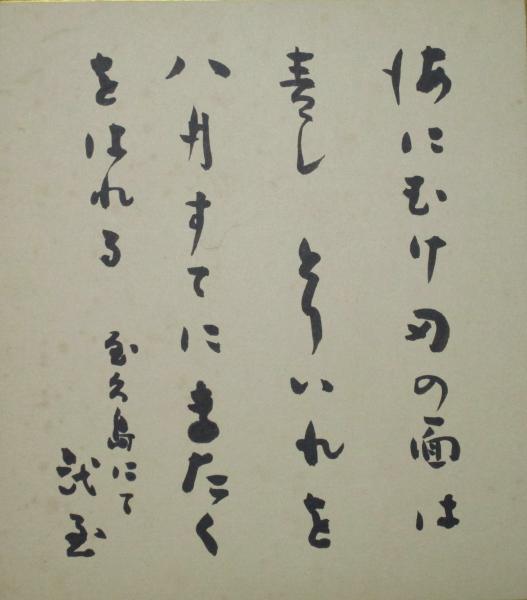 海にむけ田の面は
青し とりいれを
八月すてにまたく
をはれる
屋久島にて